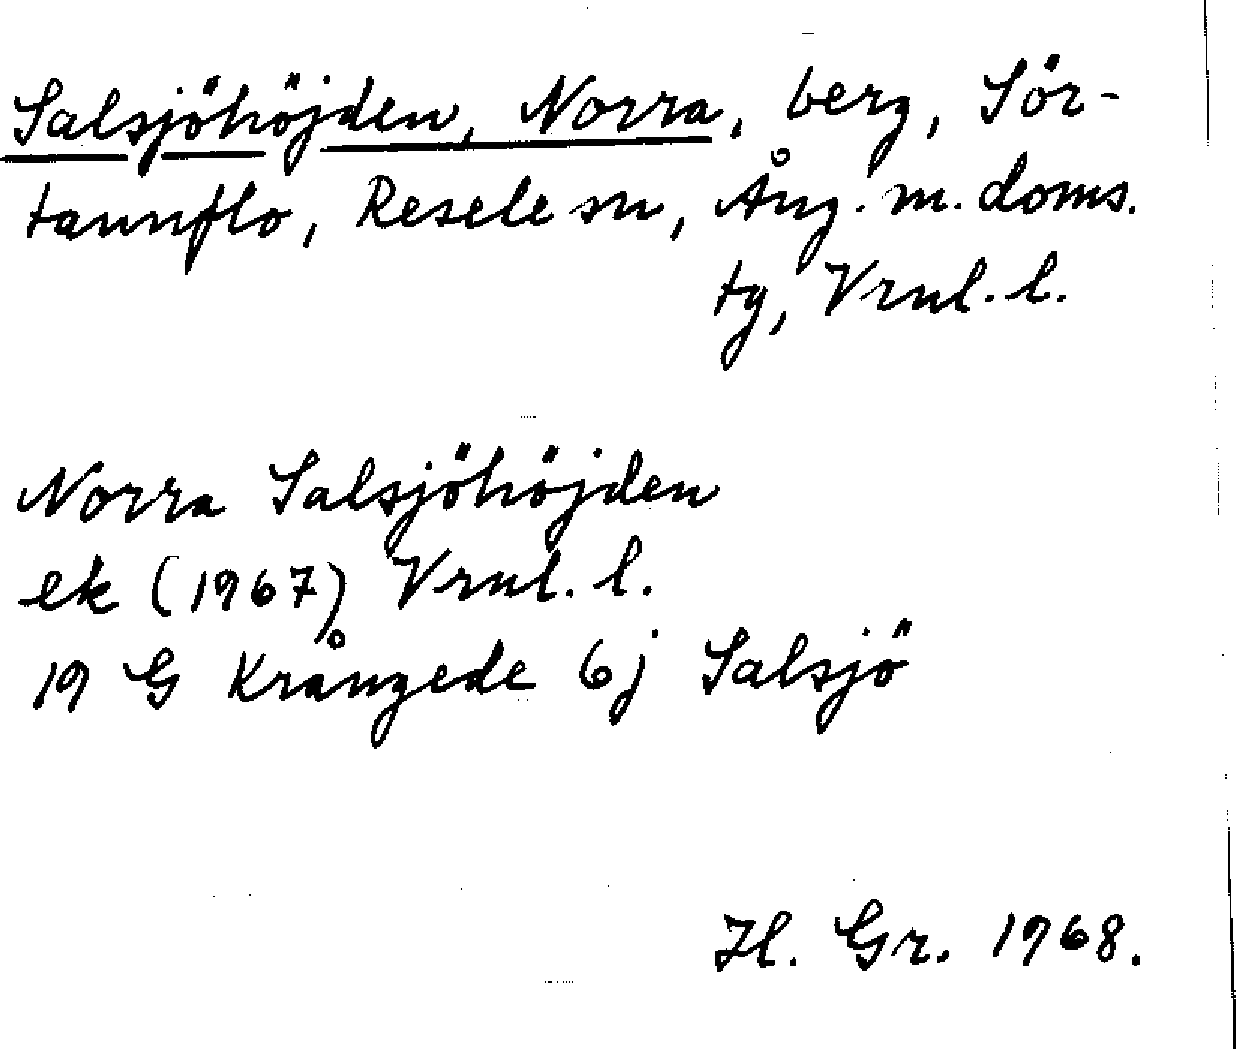 Salsjöhöjden, Norra, berg, Sör-
tannflo, Resele sn, Ång. m. doms.
tg, Vrnl. l.
Norra Salsjöhöjden
ek (1967) Vrnl. l.
19 G Krångede 6j Salsjö
H. Gr. 1968.